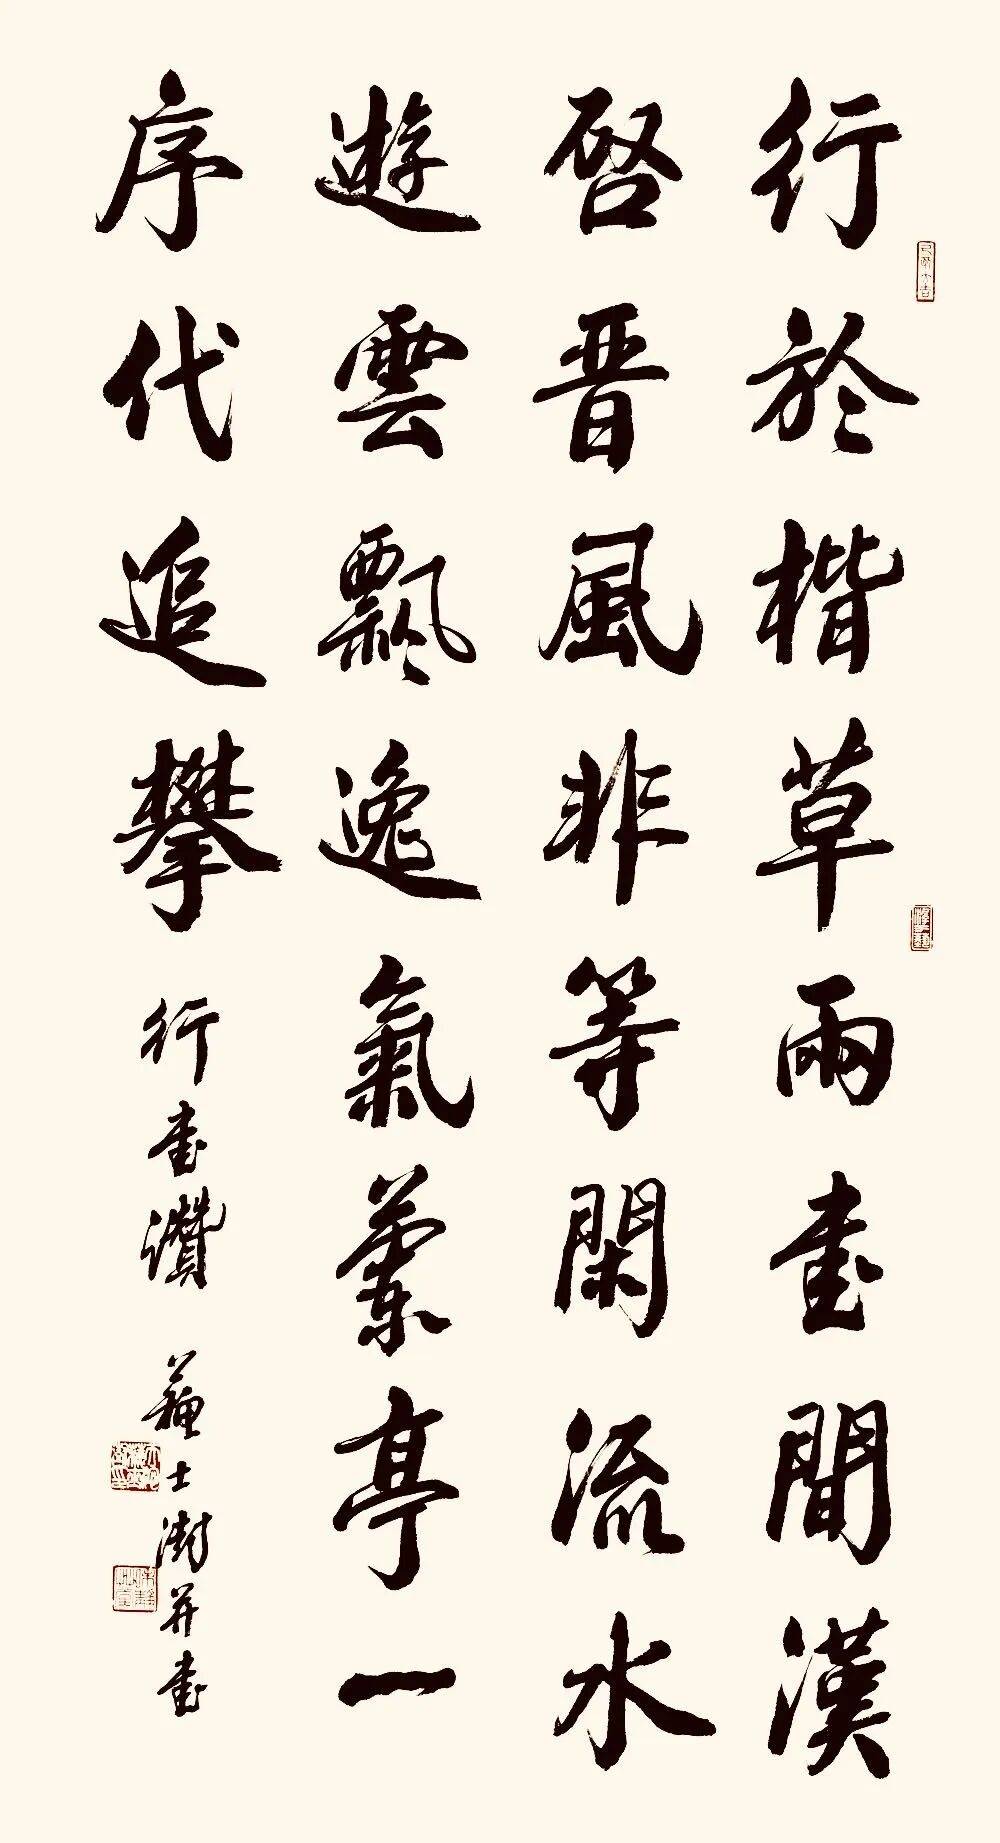 行於楷草兩書間漢
啓晋風非等閑流水
遊雲飄逸氣蘭亭一
序代追攀 行書讚 蘇士澍并書